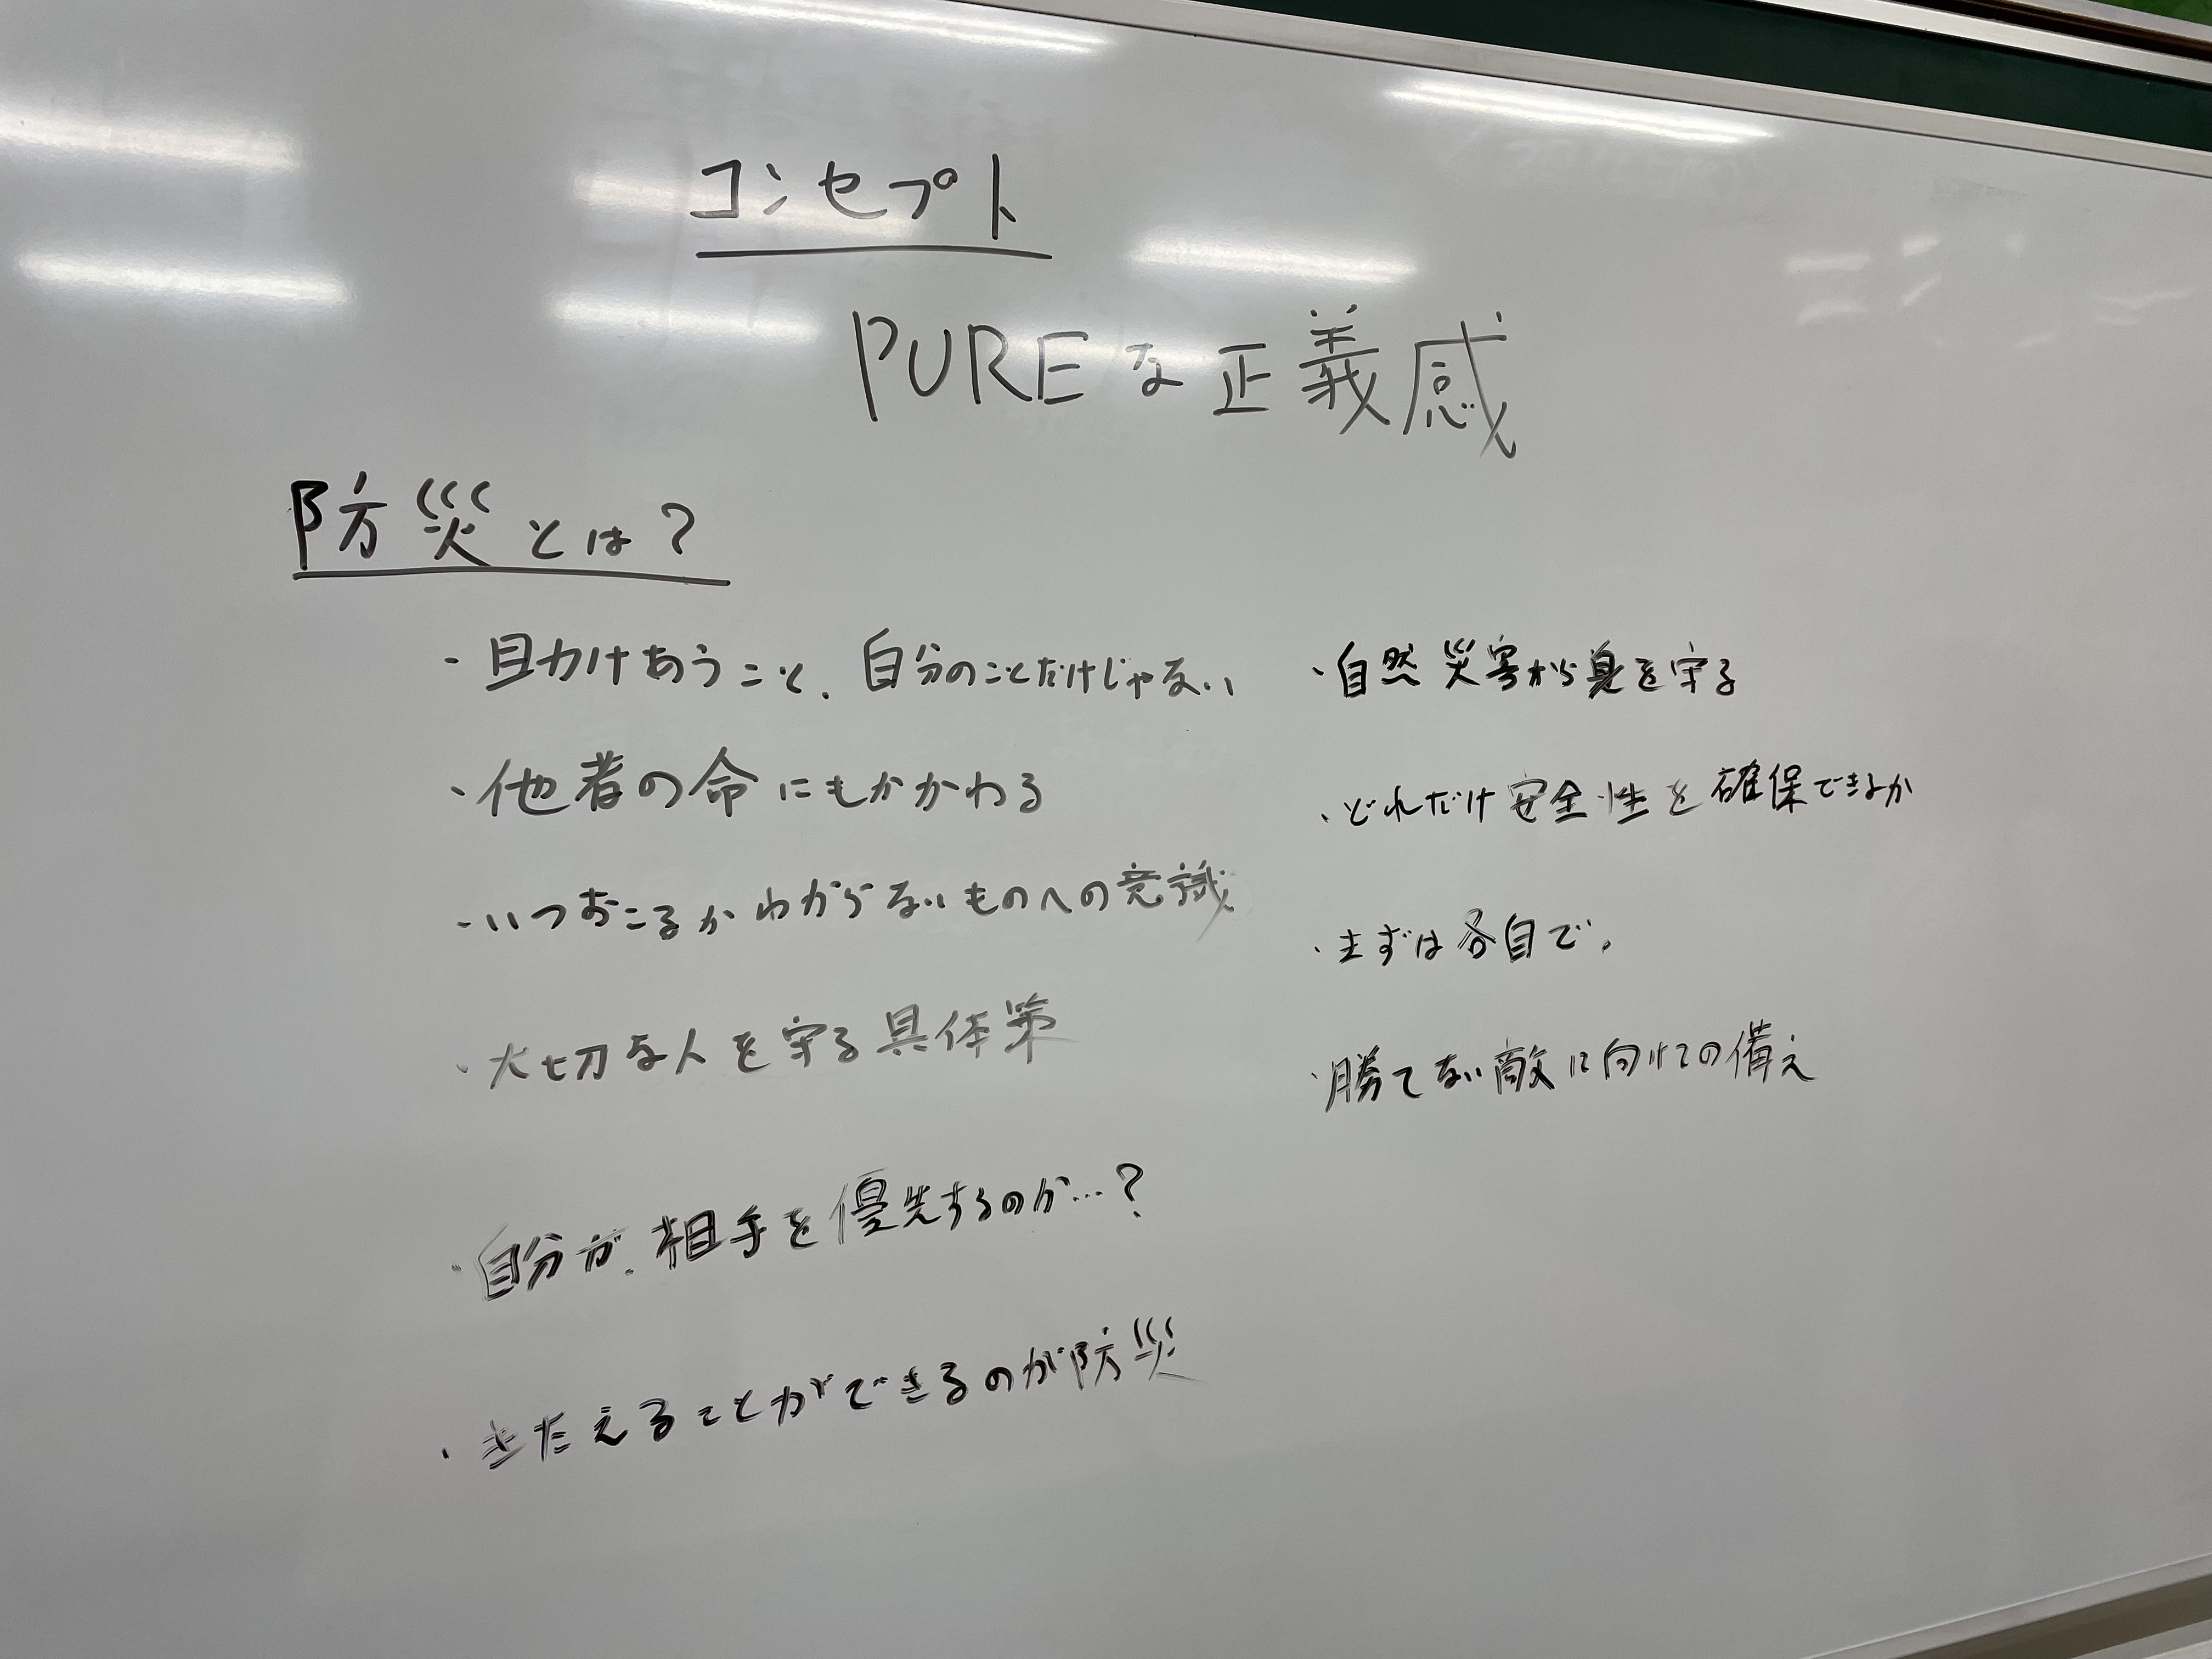 コンセプト
PUREな正義感
防災とは?
・助けあうこと、自分のことだけじゃない
・他者の命にもかかわる
・いつおこるかわからないものへの意識
・大切な人を守る具体策
・自分が、相手を優先するのか…?
・きたえることができるのが防災
・自然災害から身を守る
・どれだけ安全性を確保できるか
・まずは各自で。
・勝てない敵に向けての備え